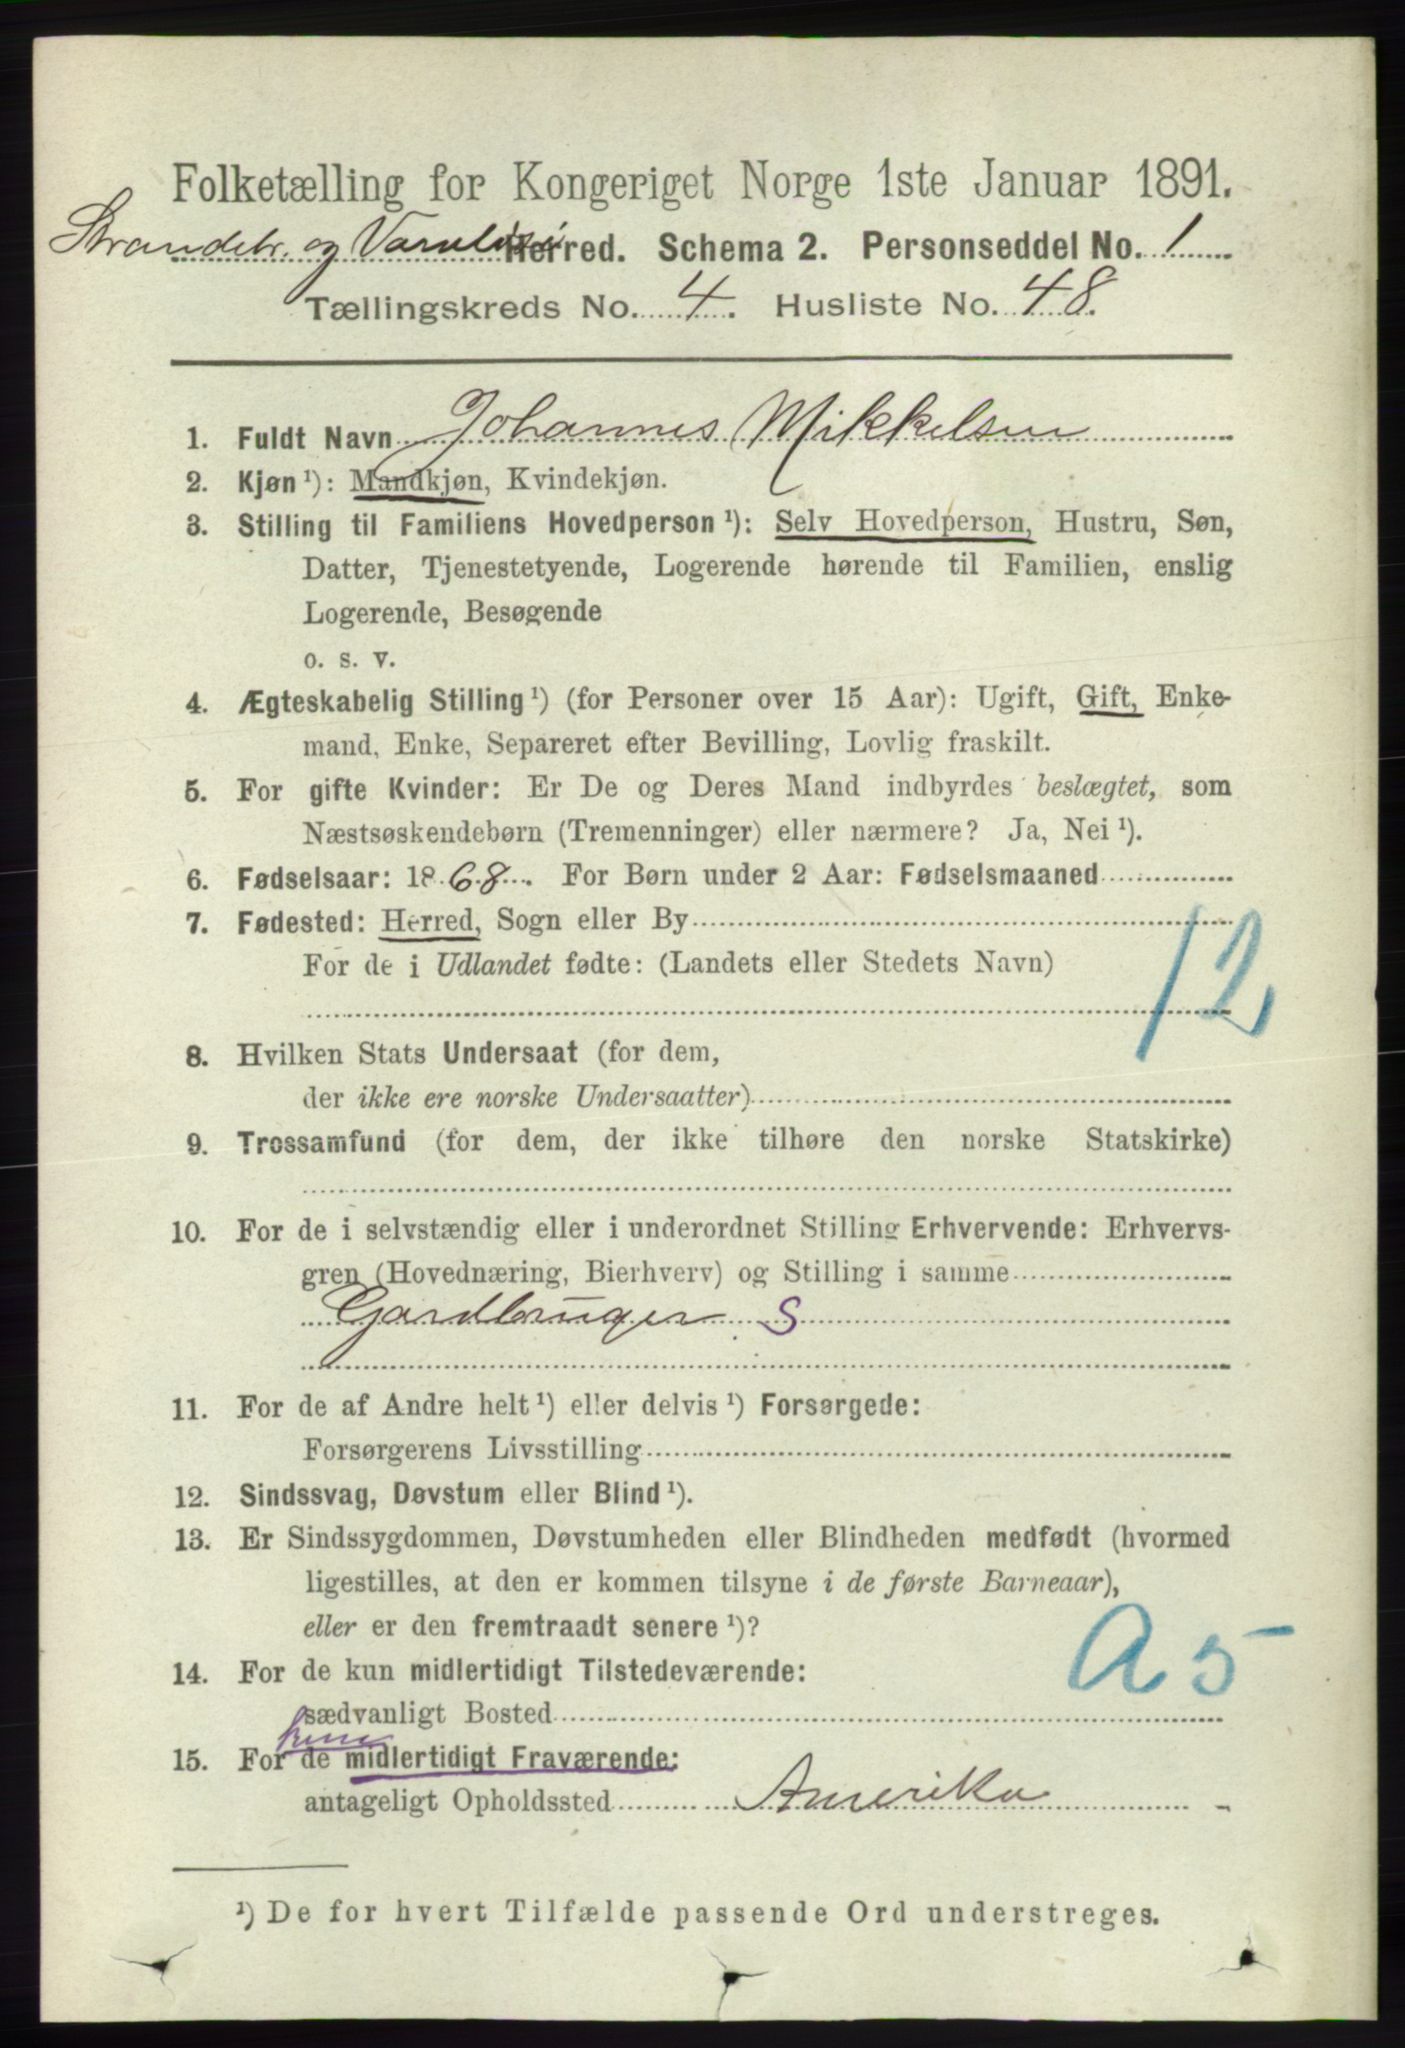 Folketælling for Kongeriget Norge 1ste Januar 1891.
Strandebr. og Varaldsø Herred. Schema 2. Personseddel No. 1
Tællingskreds No. 4. Husliste No. 48.
1. Fuldt Navn Johannes Mikkelsen
2. Kjøn¹): Mandkjøn, Kvindekjøn.
3. Stilling til Familiens Hovedperson¹): Selv Hovedperson, Hustru, Søn,
Datter, Tjenestetyende, Logerende hørende til Familien, enslig
Logerende, Besøgende
o. s. v.
4. Ægteskabelig Stilling¹) (for Personer over 15 Aar): Ugift, Gift, Enke-
mand, Enke, Separeret efter Bevilling, Lovlig fraskilt.
5. For gifte Kvinder: Er De og Deres Mand indbyrdes beslægtet, som
Næstsøskendebørn (Tremenninger) eller nærmere? Ja, Nei¹).
6. Fødselsaar: 1868. For Børn under 2 Aar: Fødselsmaaned
7. Fødested: Herred, Sogn eller By
For de i Udlandet fødte: (Landets eller Stedets Navn)
12
8. Hvilken Stats Undersaat (for dem,
der ikke ere norske Undersaatter)
9. Trossamfund (for dem, der ikke tilhøre den norske Statskirke)
10. For de i selvstændig eller i underordnet Stilling Erhvervende: Erhvervs-
gren (Hovednæring, Bierhverv) og Stilling i samme
Gardbruger S
11. For de af Andre helt¹) eller delvis¹) Forsørgede:
Forsørgerens Livsstilling
12. Sindssvag, Døvstum eller Blind¹).
13. Er Sindssygdommen, Døvstumheden eller Blindheden medfødt (hvormed
ligestilles, at den er kommen tilsyne i de første Barneaar),
eller er den fremtraadt senere¹)?
A 5
14. For de kun midlertidigt Tilstedeværende:
sædvanligt Bosted
15. For de midlertidigt Fraværende:
antageligt Opholdssted Amerika
¹) De for hvert Tilfælde passende Ord understreges.